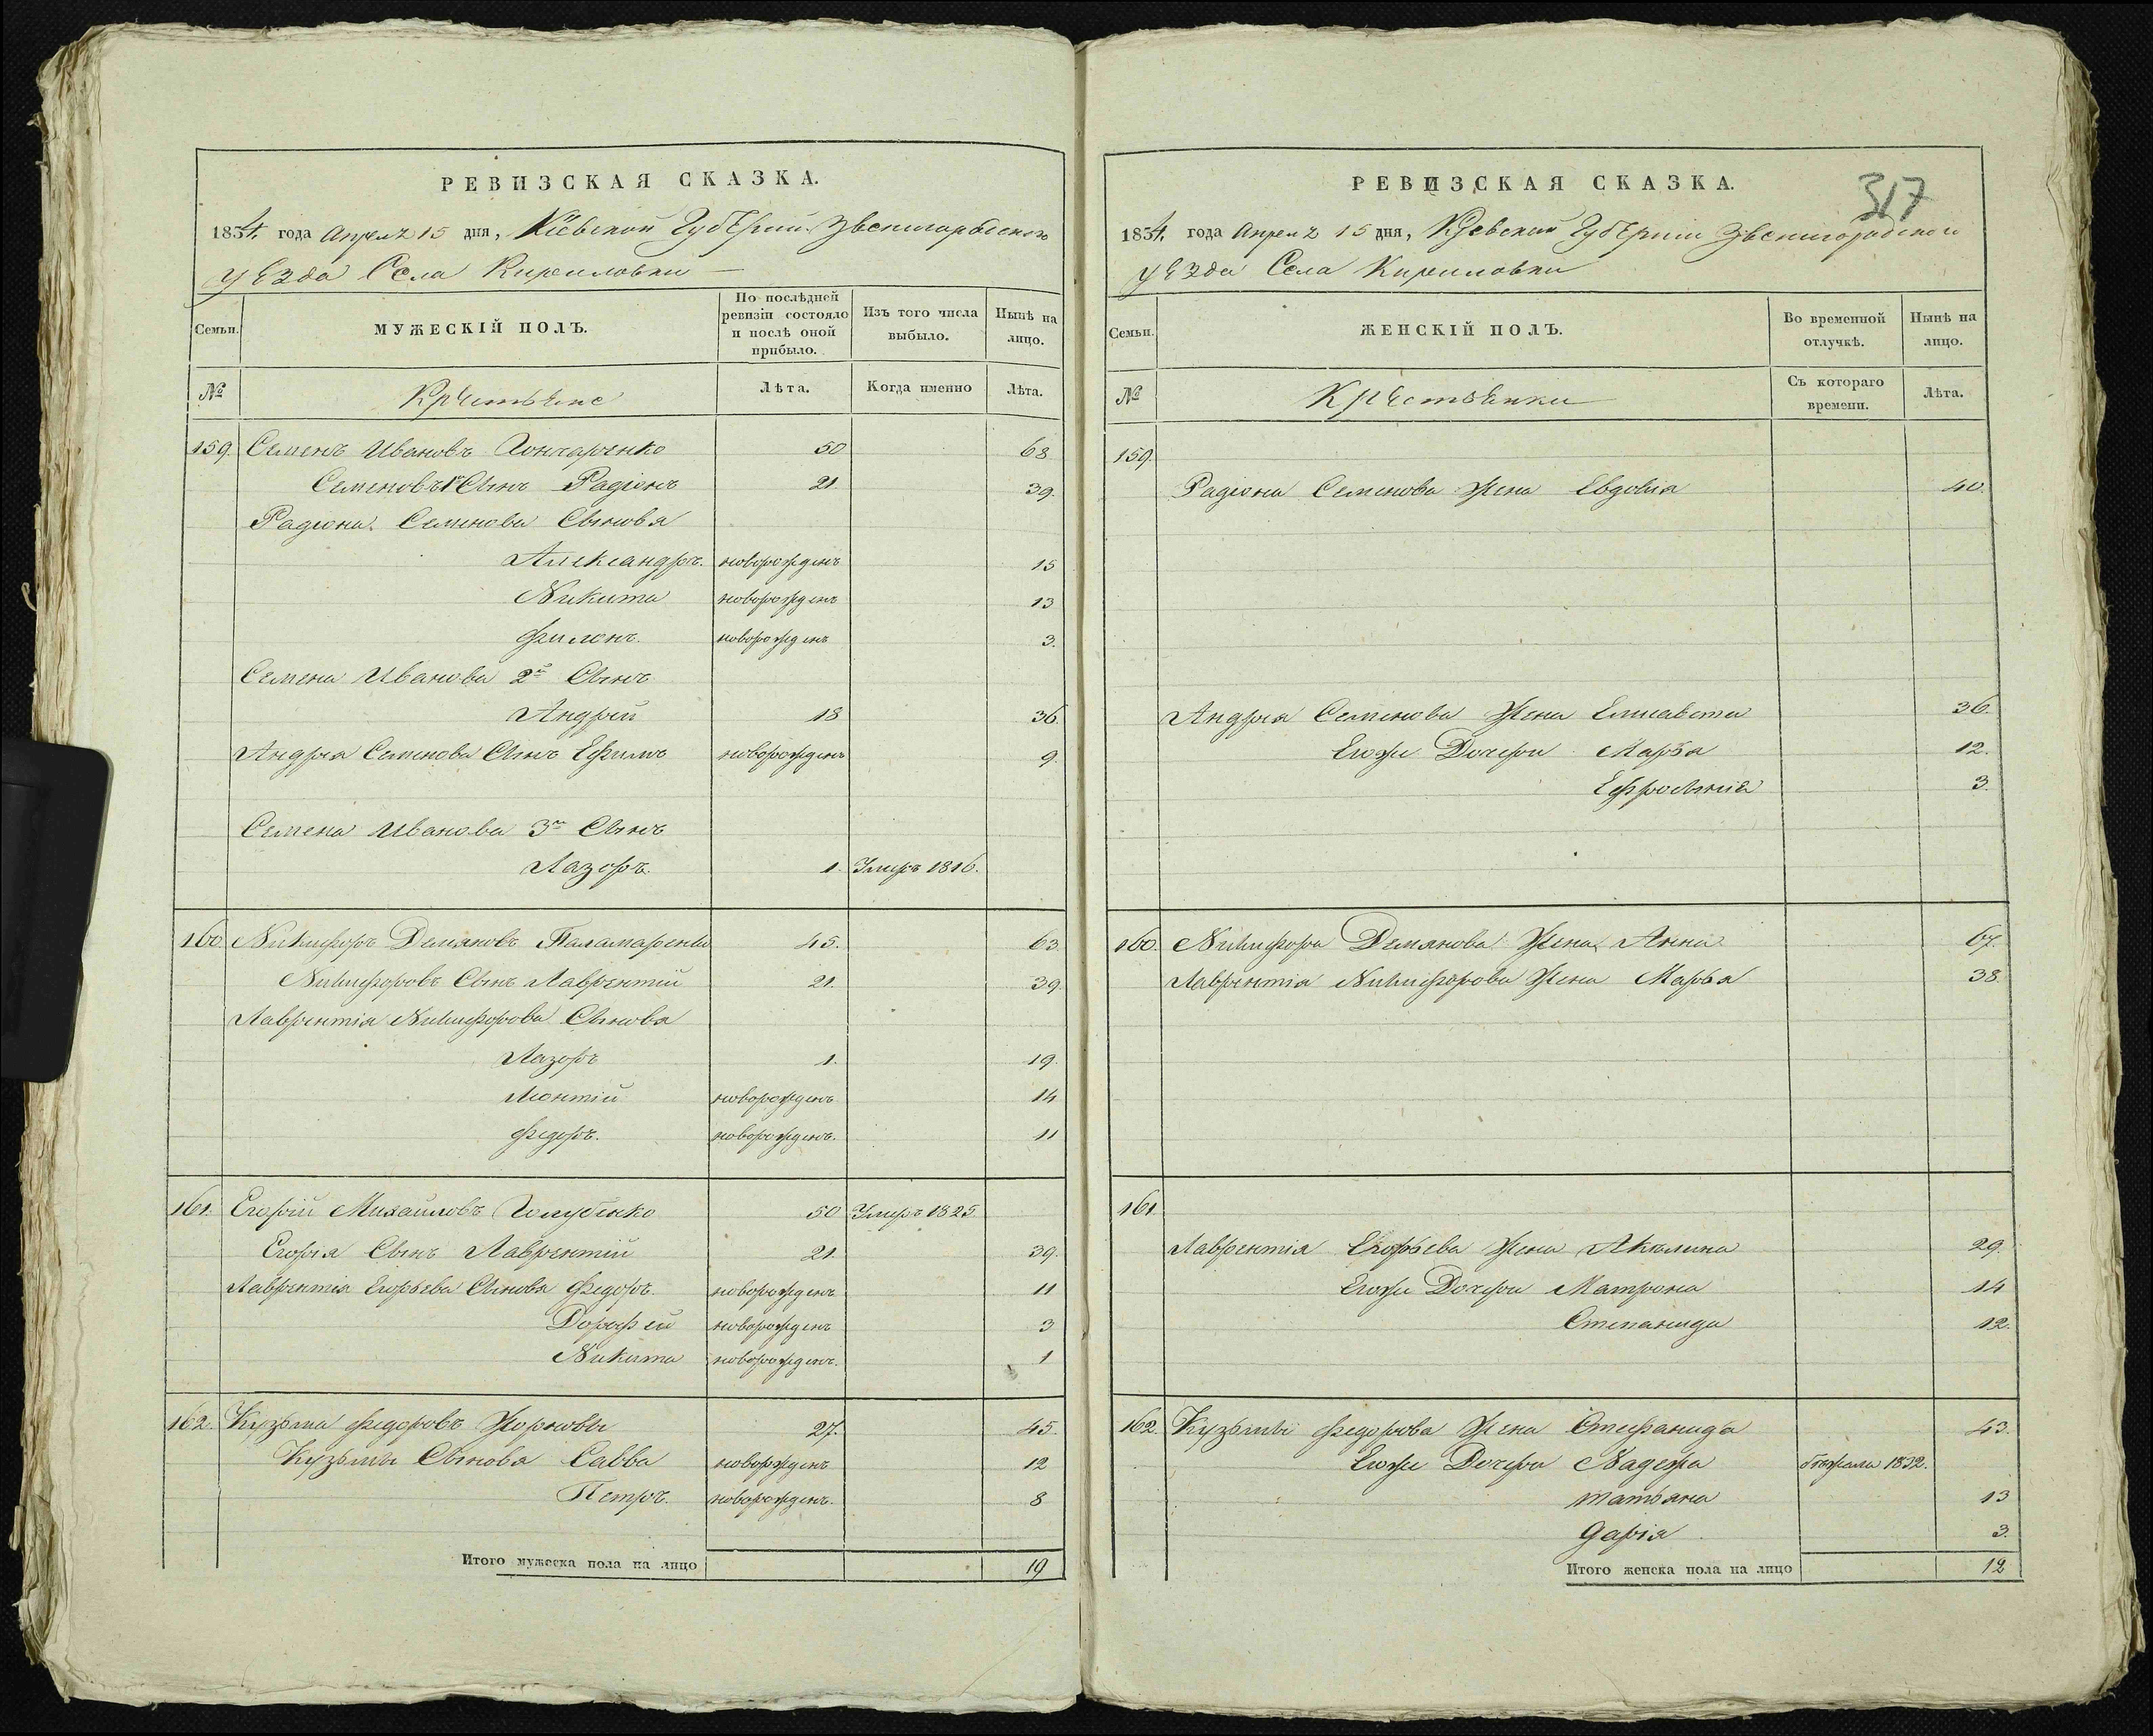 РЕВИЗСКАЯ СКАЗКА.
1834. года Апреля 15 дня, Кіевской Губерніи Звенигородского
уезда Села Кириловки —
Семьи.
МУЖЕСКІЙ ПОЛЪ.
По послѣдней ревизіи состояло и послѣ оной прибыло.
Изъ того числа выбыло.
Нынѣ на лицо.
№
Крестьяне
Лѣта.
Когда именно
Лѣта.
159. Семенъ Ивановъ Гончаренко 50 68
Семеновъ 1й Сынъ Радіонъ 21. 39.
Радиона Семенова Сыновя
Александръ. новорожденъ 15
Никита новорожденъ 13
Филонъ. новорожденъ 3.
Семена Иванова 2й Сынъ
Андрей 18 36.
Андрея Семенова Сынъ Ефимъ новорожденъ 9.
Семена Иванова 3й Сынъ
Лазоръ. 1. Умеръ 1816.
160. Никифоръ Демяновъ Паламаренко 45. 63.
Никифоровъ Сынъ Лаврентий 21. 39
Лаврентія Никифорова Сыновя
Лазоръ 1. 19.
Леонтій новорожденъ 14
Федоръ. новорожденъ. 11
161. Егорій Михаиловъ Голубенко 50 Умеръ 1825
Егорія Сынъ Лаврентій 21. 39.
Лаврентія Егорьева Сыновя Федоръ. новорожденъ 11
Дорофей новорожденъ 3
Никита новорожденъ. 1
162. Кузьма Федоровъ 27. 45.
Кузьмы Сыновя Савва новорожденъ 12
Петръ. новорожденъ. 8
Итого мужеска пола на лицо 19
РЕВИЗСКАЯ СКАЗКА.
317
1834. года Апреля 15 дня, Кіевской Губерніи Звенигородского
уезда Села Кириловки
Семьи.
ЖЕНСКІЙ ПОЛЪ.
Во временной отлучкѣ.
Нынѣ на лицо.
№
Крестьянки
Съ котораго времени.
Лѣта.
159.
Радіона Семенова Жена Евдокія 40.
Андрея Семенова Жена Елисавета 36.
Егожъ Дочери Марѳа 12.
Ефросинія 3.
160. Никифора Демянова Жена Анна 67.
Лаврентія Никифорова Жена Марѳа 38
161
Лаврентія Егорьева Жена Акилина 29.
Егоже Дочери Матрона 14
Степанида 12.
162. Кузьмы Федорова Жена Стефанида 43.
Егоже Дочери Надежа бежала 1832.
Татьяна 13
Дарія 3.
Итого женска пола на лицо 12